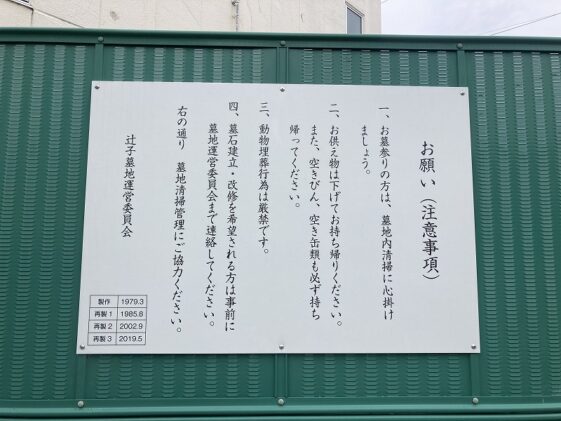 お願い(注意事項)
一、お墓参りの方は、墓地内清掃に心掛け
ましょう。
二、お供え物は下げてお持ち帰りください。
また、空きびん、空き缶類も必ず持ち
帰ってください。
三、動物埋葬行為は厳禁です。
四、墓石建立・改修を希望される方は事前に
墓地運営委員会まで連絡してください。
右の通り 墓地清掃管理にご協力ください。
辻子墓地運営委員会
製作 1979.3
再製1 1985.8
再製2 2002.9
再製3 2019.5